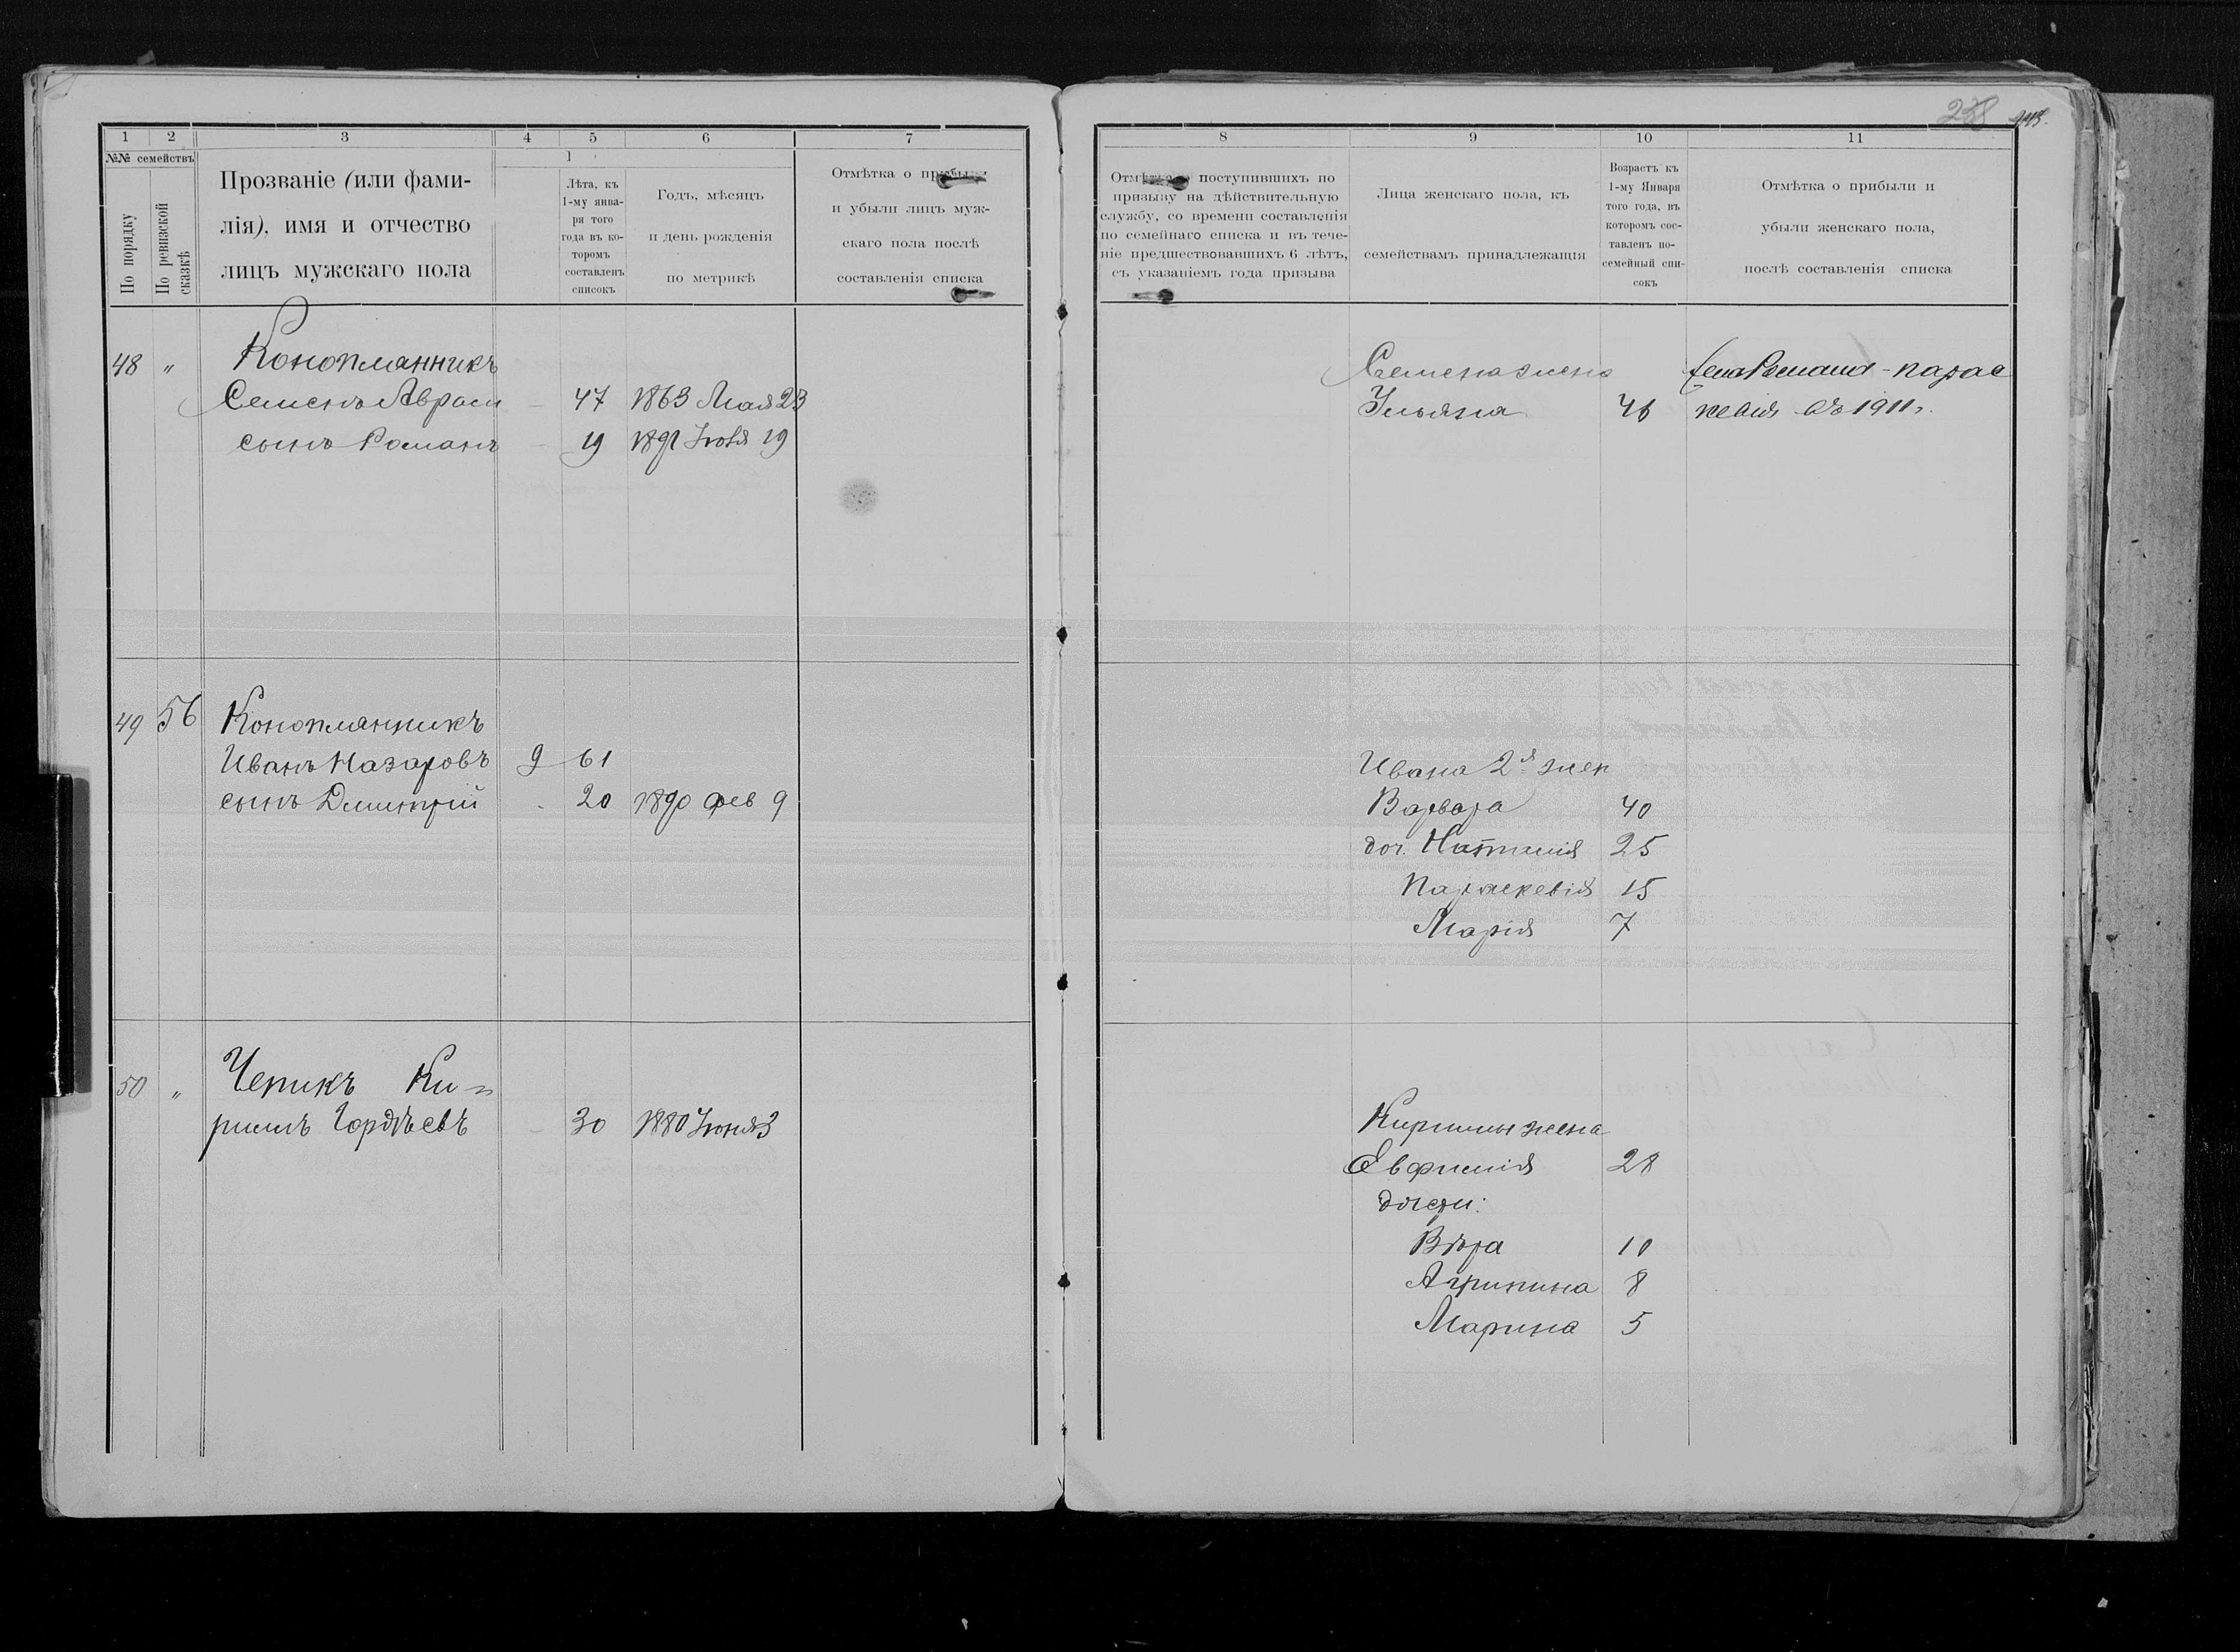 1 2 3 4 5 6 7
№№ семействъ
По порядку
По ревизской сказкѣ
Прозваніе (или фами-
лія), имя и отчество
лицъ мужскаго пола
Лѣта, къ
1-му янва-
ря того
года въ ко-
торомъ
составленъ
списокъ
Годъ, мѣсяцъ
и день рожденія
по метрикѣ
Отмѣтка о прибыли
и убыли лицъ муж-
скаго пола послѣ
составленія списка
48 „ Коноплянникъ
Семенъ Аврам – 47 1863 Мая 23
сынъ Романъ – 19 1891 19
49 56 Коноплянникъ
Иванъ Назаровъ 9 61
сынъ Димитрій 20 1890 фев 9
50 „ Черикъ Ки-
риллъ Гордѣевъ – 30 1880 Іюня 3
238
8 9 10 11
поступившихъ по
призыву на дѣйствительную
службу, со времени составленія
по семейнаго списка и въ тече-
ніе предшествовавшихъ 6 лѣтъ,
съ указаніемъ года призыва
Лица женскаго пола, къ
семействамъ принадлежащія
Возрастъ къ
1-му Января
того года, въ
которомъ сос-
тавленъ по-
семейный спи-
сокъ
Отмѣтка о прибыли и
убыли женскаго пола,
послѣ составленія списка
Семена жена Романа - парас
Ульяна 46 кевія въ 1911 г.
Ивана 2я жен
Варвара 40
доч. Наталія 25
Параскевія 15
Марія 7
Кирилы жена
Евфимія 28
дочери:
Вѣра 10
Агрипина 8
Марина 5